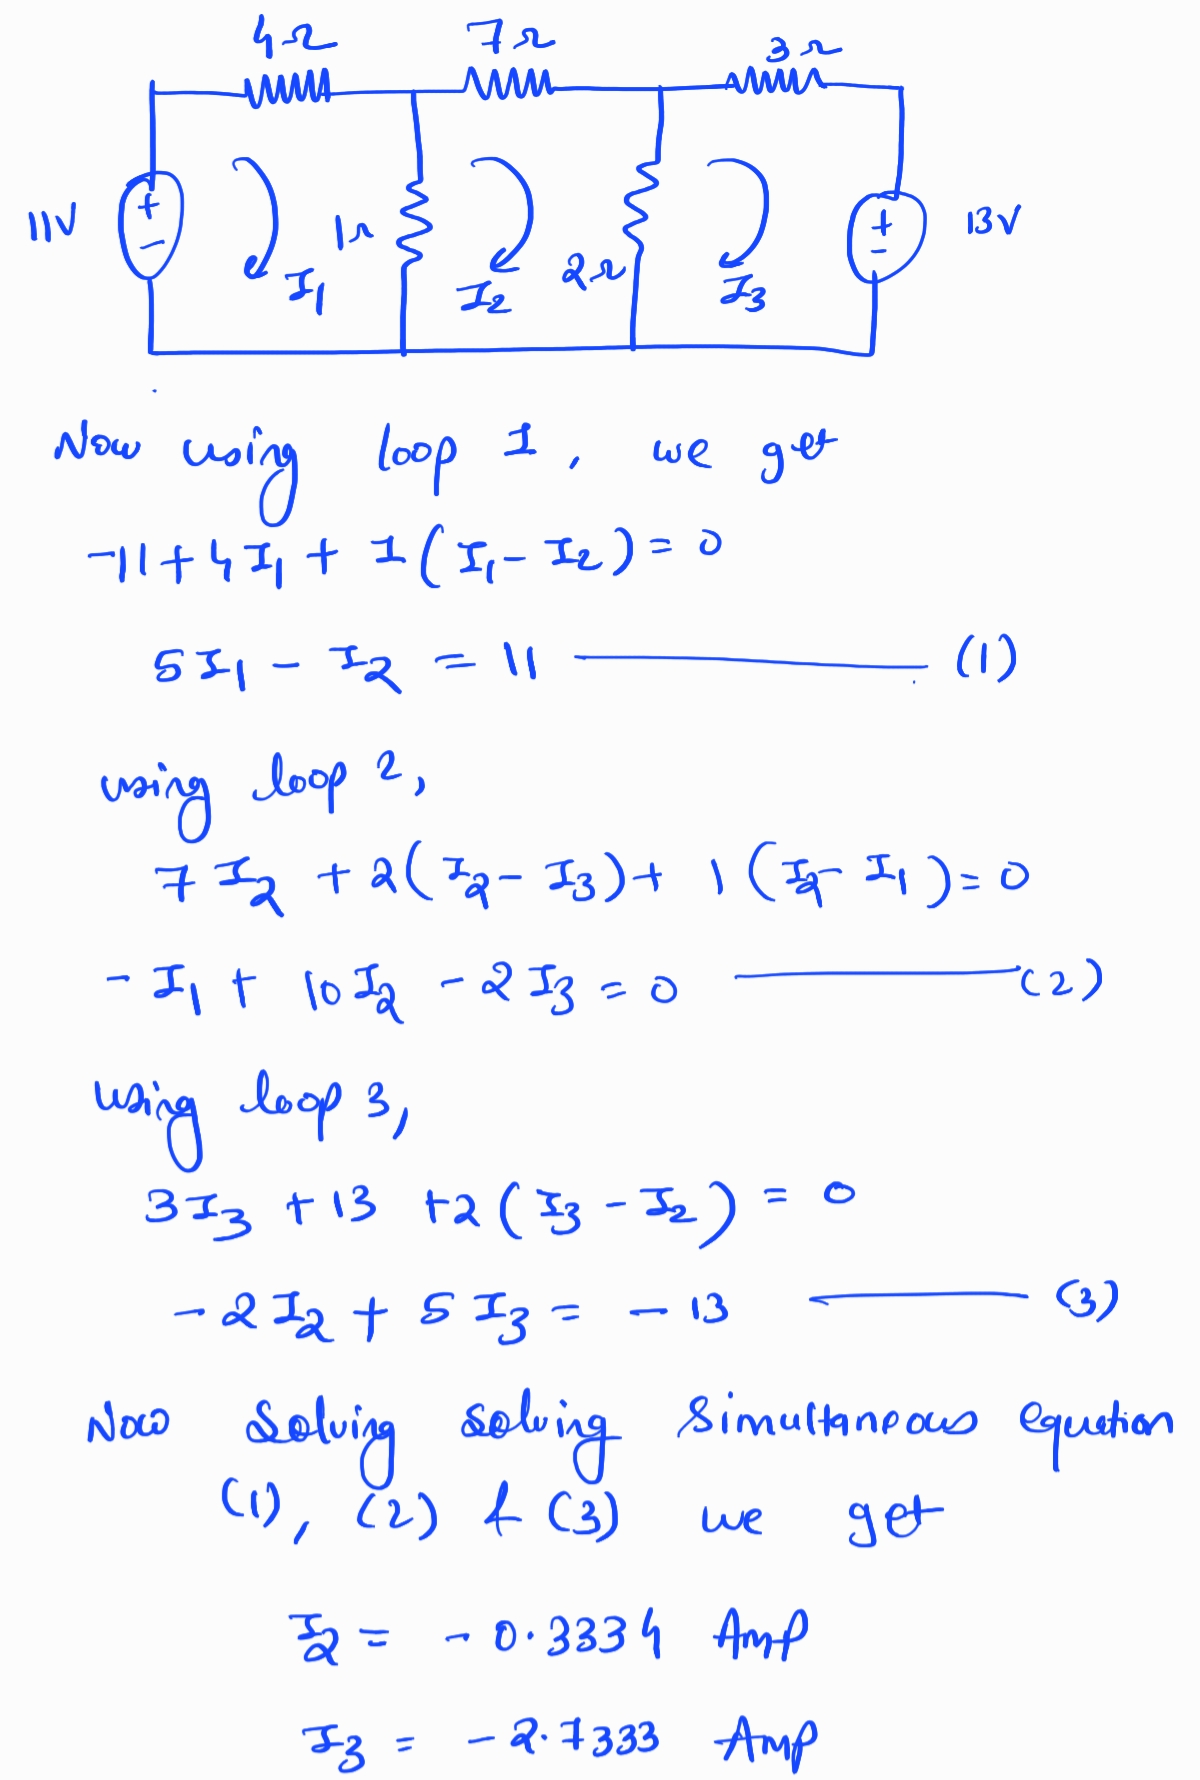 4Ω 7Ω 3Ω
11V + − I₁ 1Ω I₂ 2Ω I₃ + − 13V
Now using loop 1, we get
-11 + 4I₁ + 1(I₁ - I₂) = 0
5I₁ - I₂ = 11 ——— (1)
using loop 2,
7I₂ + 2(I₂ - I₃) + 1(I₂ - I₁) = 0
-I₁ + 10I₂ - 2I₃ = 0 ——— (2)
using loop 3,
3I₃ + 13 + 2(I₃ - I₂) = 0
-2I₂ + 5I₃ = -13 ——— (3)
Now solving solving simultaneous equation
(1), (2) & (3) we get
I₂ = -0.3334 Amp
I₃ = -2.7333 Amp